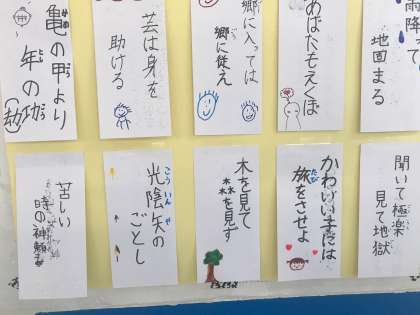 雨降って
地固まる
あばたもえくぼ
郷に入っては
郷に従え
芸は身を
助ける
亀の甲より
年の功
(劫)
聞いて極楽
見て地獄
かわいい子には
旅をさせよ
たび
木を見て
森を見ず
光陰矢の
ごとし
こういんや
苦しい
時の神頼み